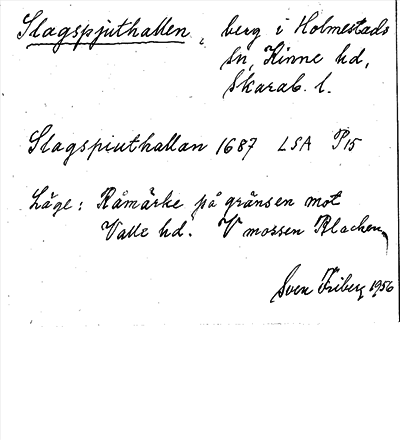 Slagspjuthallen, berg i Holmestads
sn, Kinne hd,
Skarab. l.
Slagspiuthallan 1687 LSA P15
Läge: Råmärke på gränsen mot
Valle hd. V mossen Blacken
Sven Friberg 1956